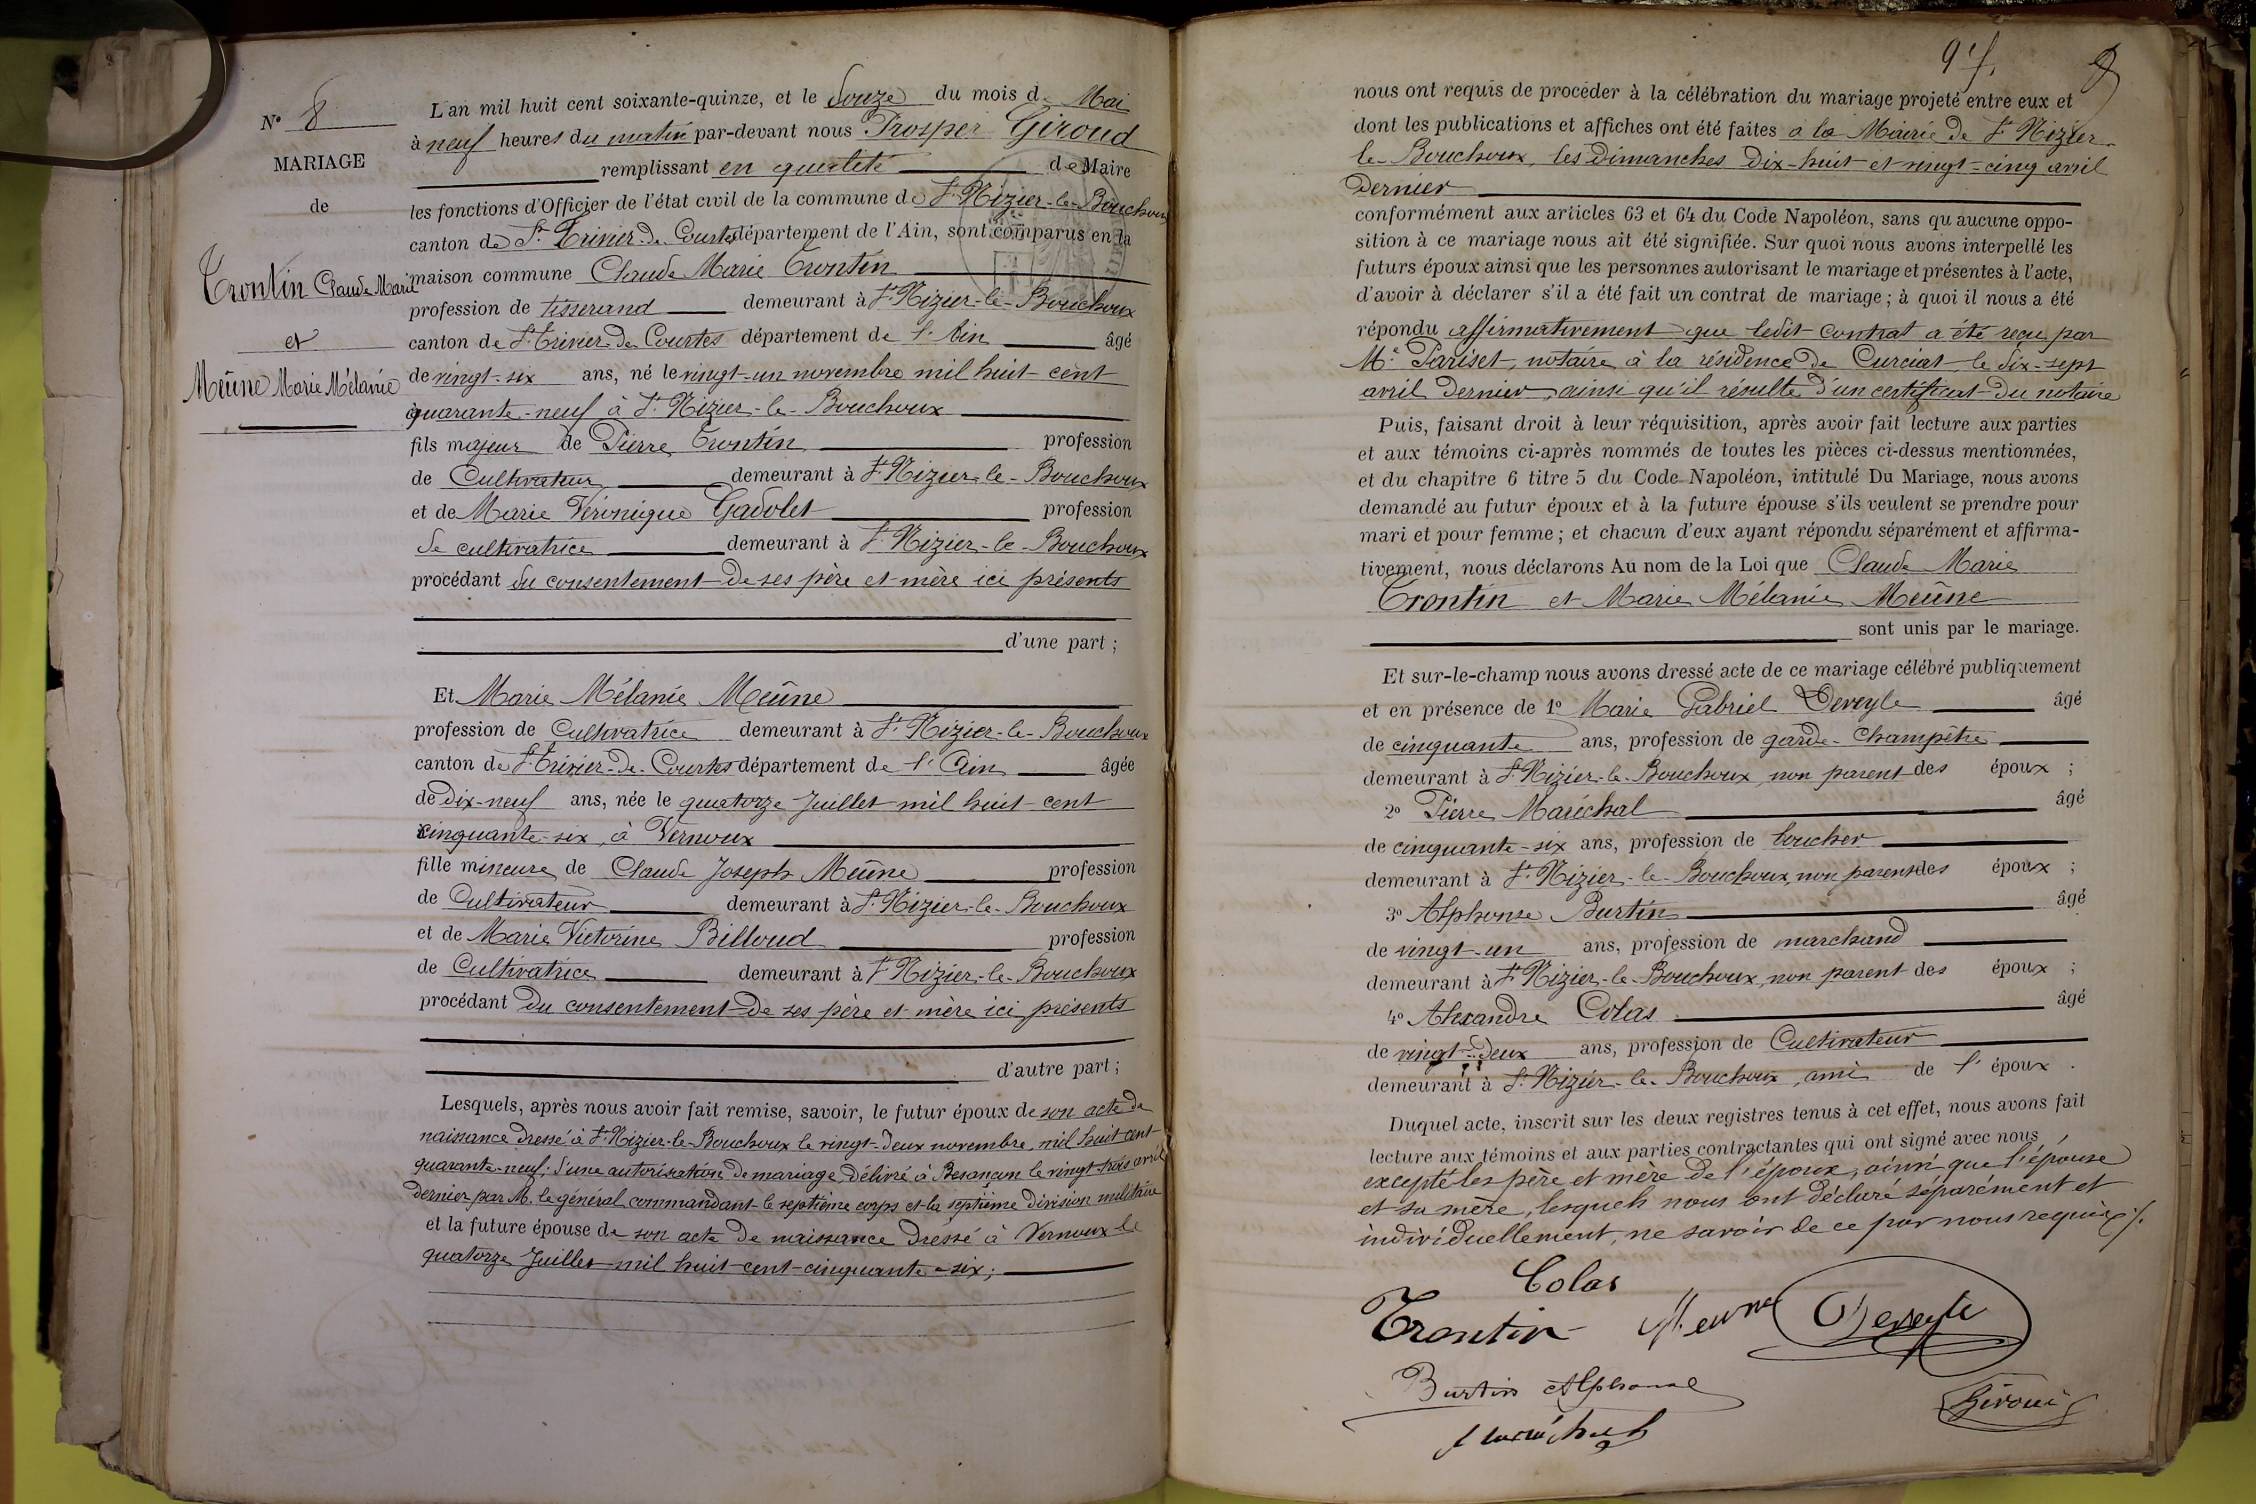 N° 8
MARIAGE
de
Trontin Claude Marie
et
Meûne Marie Mélanie
L'an mil huit cent soixante-quinze, et le douze du mois de Mai
à neuf heures du matin par-devant nous Prosper Giroud
remplissant en qualité de Maire
les fonctions d'Officier de l'état civil de la commune de St Nizier-le-Bouchoux
canton de St Trivier-de-Courtes département de l'Ain, sont comparus en la
maison commune Claude Marie Trontin
profession de tisserand demeurant à St Nizier-le-Bouchoux
canton de St Trivier-de-Courtes département de l'Ain âgé
de vingt-six ans, né le vingt-un novembre mil huit-cent
quarante-neuf à St Nizier-le-Bouchoux
fils majeur de Pierre Trontin profession
de Cultivateur demeurant à St Nizier-le-Bouchoux
et de Marie Véronique Gadolet profession
de cultivatrice demeurant à St Nizier-le-Bouchoux
procédant du consentement de ses père et mère ici présents
d'une part ;
Et Marie Mélanie Meûne
profession de Cultivatrice demeurant à St Nizier-le-Bouchoux
canton de St Trivier-de-Courtes département de l'Ain âgée
de dix-neuf ans, née le quatorze Juillet mil huit-cent
cinquante-six, à Vernoux
fille mineure de Claude Joseph Meûne profession
de Cultivateur demeurant à St Nizier-le-Bouchoux
et de Marie Victorine Billoud profession
de Cultivatrice demeurant à St Nizier-le-Bouchoux
procédant du consentement de ses père et mère ici présents
d'autre part ;
Lesquels, après nous avoir fait remise, savoir, le futur époux de son acte de
naissance dressé à St Nizier-le-Bouchoux le vingt-deux novembre mil huit-cent
quarante-neuf; d'une autorisation de mariage délivré à Besançon le vingt-trois avril
dernier par M. le général commandant le septième corps et la septième division militaire
et la future épouse de son acte de naissance dressé à Vernoux le
quatorze Juillet mil huit-cent-cinquante-six;
8
nous ont requis de procéder à la célébration du mariage projeté entre eux et
dont les publications et affiches ont été faites à la Mairie de St Nizier-
le-Bouchoux, les Dimanches dix-huit et vingt-cinq avril
dernier
conformément aux articles 63 et 64 du Code Napoléon, sans qu'aucune oppo-
sition à ce mariage nous ait été signifiée. Sur quoi nous avons interpellé les
futurs époux ainsi que les personnes autorisant le mariage et présentes à l'acte,
d'avoir à déclarer s'il a été fait un contrat de mariage ; à quoi il nous a été
répondu affirmativement que ledit contrat a été reçu par
Me Pariset, notaire à la résidence de Curciat, le dix-sept
avril dernier, ainsi qu'il résulte d'un certificat du notaire
Puis, faisant droit à leur réquisition, après avoir fait lecture aux parties
et aux témoins ci-après nommés de toutes les pièces ci-dessus mentionnées,
et du chapitre 6 titre 5 du Code Napoléon, intitulé Du Mariage, nous avons
demandé au futur époux et à la future épouse s'ils veulent se prendre pour
mari et pour femme ; et chacun d'eux ayant répondu séparément et affirma-
tivement, nous déclarons Au nom de la Loi que Claude Marie
Trontin et Marie Mélanie Meûne
sont unis par le mariage.
Et sur-le-champ nous avons dressé acte de ce mariage célébré publiquement
et en présence de 1° Marie Gabriel Deveyle âgé
de cinquante ans, profession de garde-Champêtre
demeurant à St Nizier-le-Bouchoux, non parent des époux ;
2° Pierre Maréchal âgé
de cinquante-six ans, profession de boucher
demeurant à St Nizier-le-Bouchoux, non parent des époux ;
3° Alphonse Burtin âgé
de vingt-un ans, profession de marchand
demeurant à St Nizier-le-Bouchoux, non parent des époux ;
4° Alexandre Colas âgé
de vingt-deux ans, profession de Cultivateur
demeurant à St Nizier-le-Bouchoux, ami de l'époux.
Duquel acte, inscrit sur les deux registres tenus à cet effet, nous avons fait
lecture aux témoins et aux parties contractantes qui ont signé avec nous,
excepté les père et mère de l'époux, ainsi que l'épouse
et sa mère, lesquels nous ont déclaré séparément et
individuellement, ne savoir de ce par nous requis ./.
Colas
Trontin Meune Deveyle
Burtin Alphonse Giroud
Maréchal